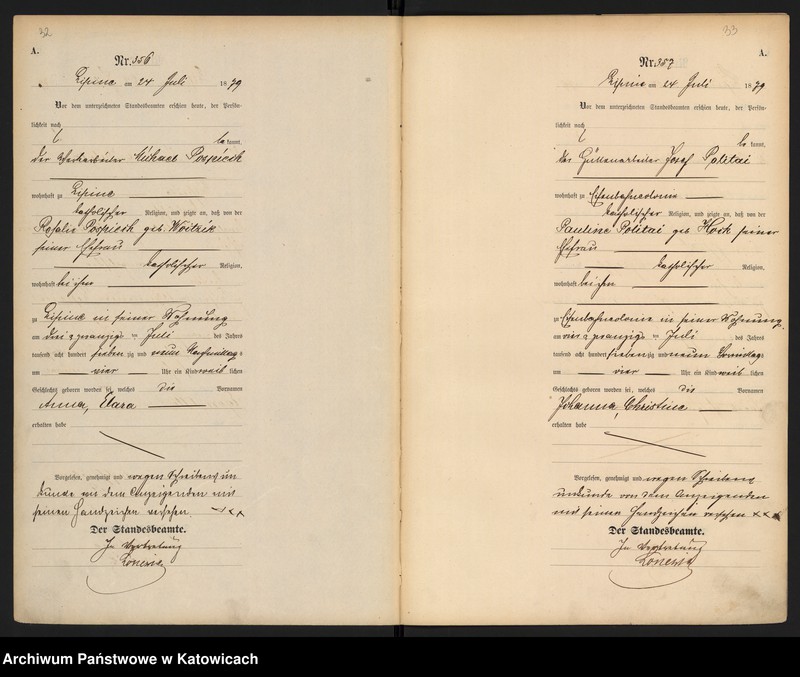 32
A.
Nr. 356
Lipine am 24 Juli 1879
Vor dem unterzeichneten Standesbeamten erschien heute, der Persön-
lichkeit nach
be kannt,
der Michael Pospiech
wohnhaft zu Lipine
katholischer Religion, und zeigte an, daß von der
Rosalie Pospiech geb. Woitzik
seiner Ehefrau
katholischer Religion,
wohnhaft bei ihm
zu Lipine in seiner Wohnung
am drei u zwanzig ten Juli des Jahres
tausend acht hundert sieben zig und neun Nachmittags
um vier Uhr ein Kind weib lichen
Geschlechts geboren worden sei, welches die Vornamen
Anna, Clara
erhalten habe
Vorgelesen, genehmigt und wegen Schreibens un
kunde von dem Anzeigenden mit
seinen Handzeichen versehen xxx
Der Standesbeamte.
In Vertretung
33
A.
Nr. 357
Lipine am 24 Juli 1879
Vor dem unterzeichneten Standesbeamten erschien heute, der Persön-
lichkeit nach
be kannt,
der Hüttenarbeiter Josef Politai
wohnhaft zu Eisenbahncolonie
katholischer Religion, und zeigte an, daß von der
Pauline Politai geb. seiner
Ehefrau
katholischer Religion,
wohnhaft bei ihm
zu Eisenbahncolonie in seiner Wohnung
am vier u zwanzig ten Juli des Jahres
tausend acht hundert sieben zig und neun Vormittags
um vier Uhr ein Kind weib lichen
Geschlechts geboren worden sei, welches die Vornamen
Johanna, Christina
erhalten habe
Vorgelesen, genehmigt und wegen Schreibens
unkunde von dem Anzeigenden
mit seinen Handzeichen versehen xxx
Der Standesbeamte.
In Vertretung
Archiwum Państwowe w Katowicach